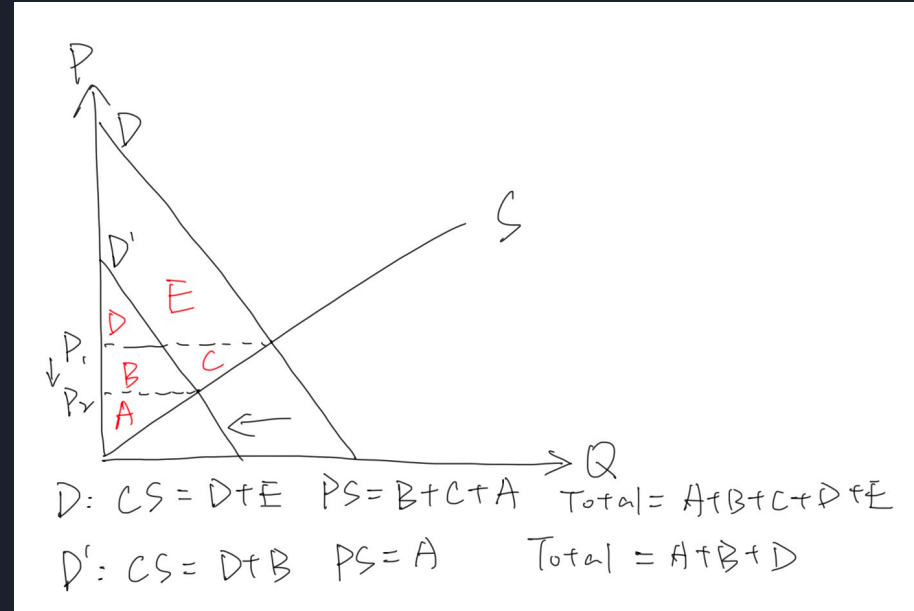 P
D
S
D'
E
D
P₁
C
B
P₂
A
Q
D: CS = D+E PS = B+C+A Total = A+B+C+D+E
D': CS = D+B PS = A Total = A+B+D